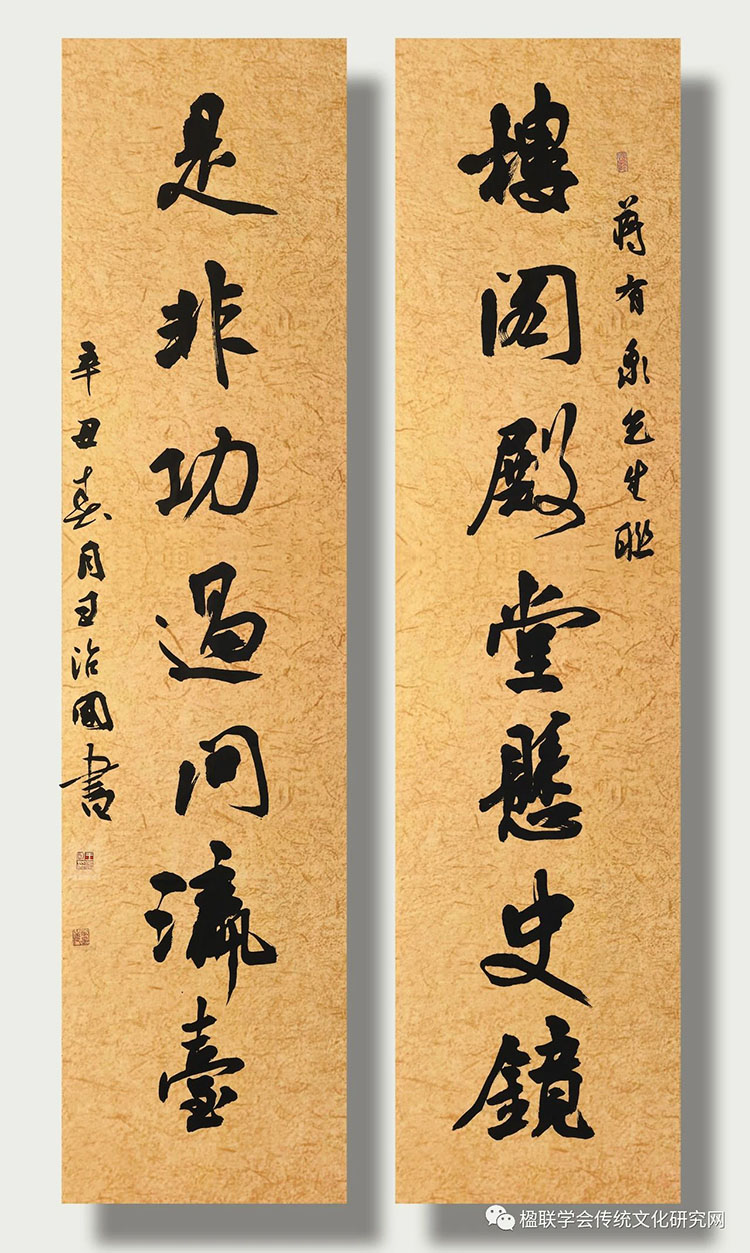 蔣有泉先生聯
樓阁殿堂懸史鏡
是非功過问瀛臺
辛丑春月王治國書
楹联学会传统文化研究网